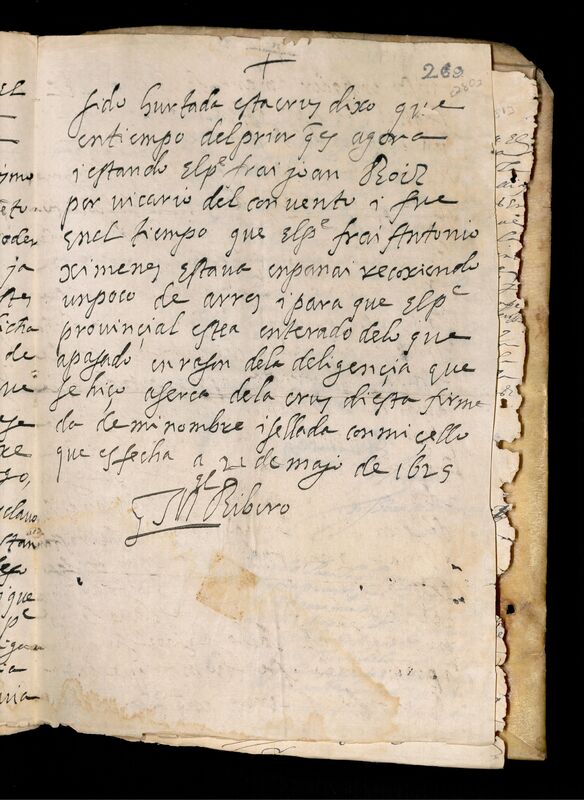 260
sido hurtada esta crus dixo que
en tiempo del prior q̃ es agora
i estando el pe frai juan Roiz
por vicario del convento i fue
en el tiempo que el pe frai Antonio
Ximenes estava en panai recoxiendo
un poco de arros i para que el pe
provinçial estea enterado de lo que
a pasado en rason de la deligençia que
se hiço aserca de la crus di esta firma
da de mi nombre i sellada con mi çello
que es fecha a 21 de majo de 1625
Ml Ribero
EL
ymo
poder
ja
stes
icha
de
que
xe
go,
sclavo
stan
que
pe